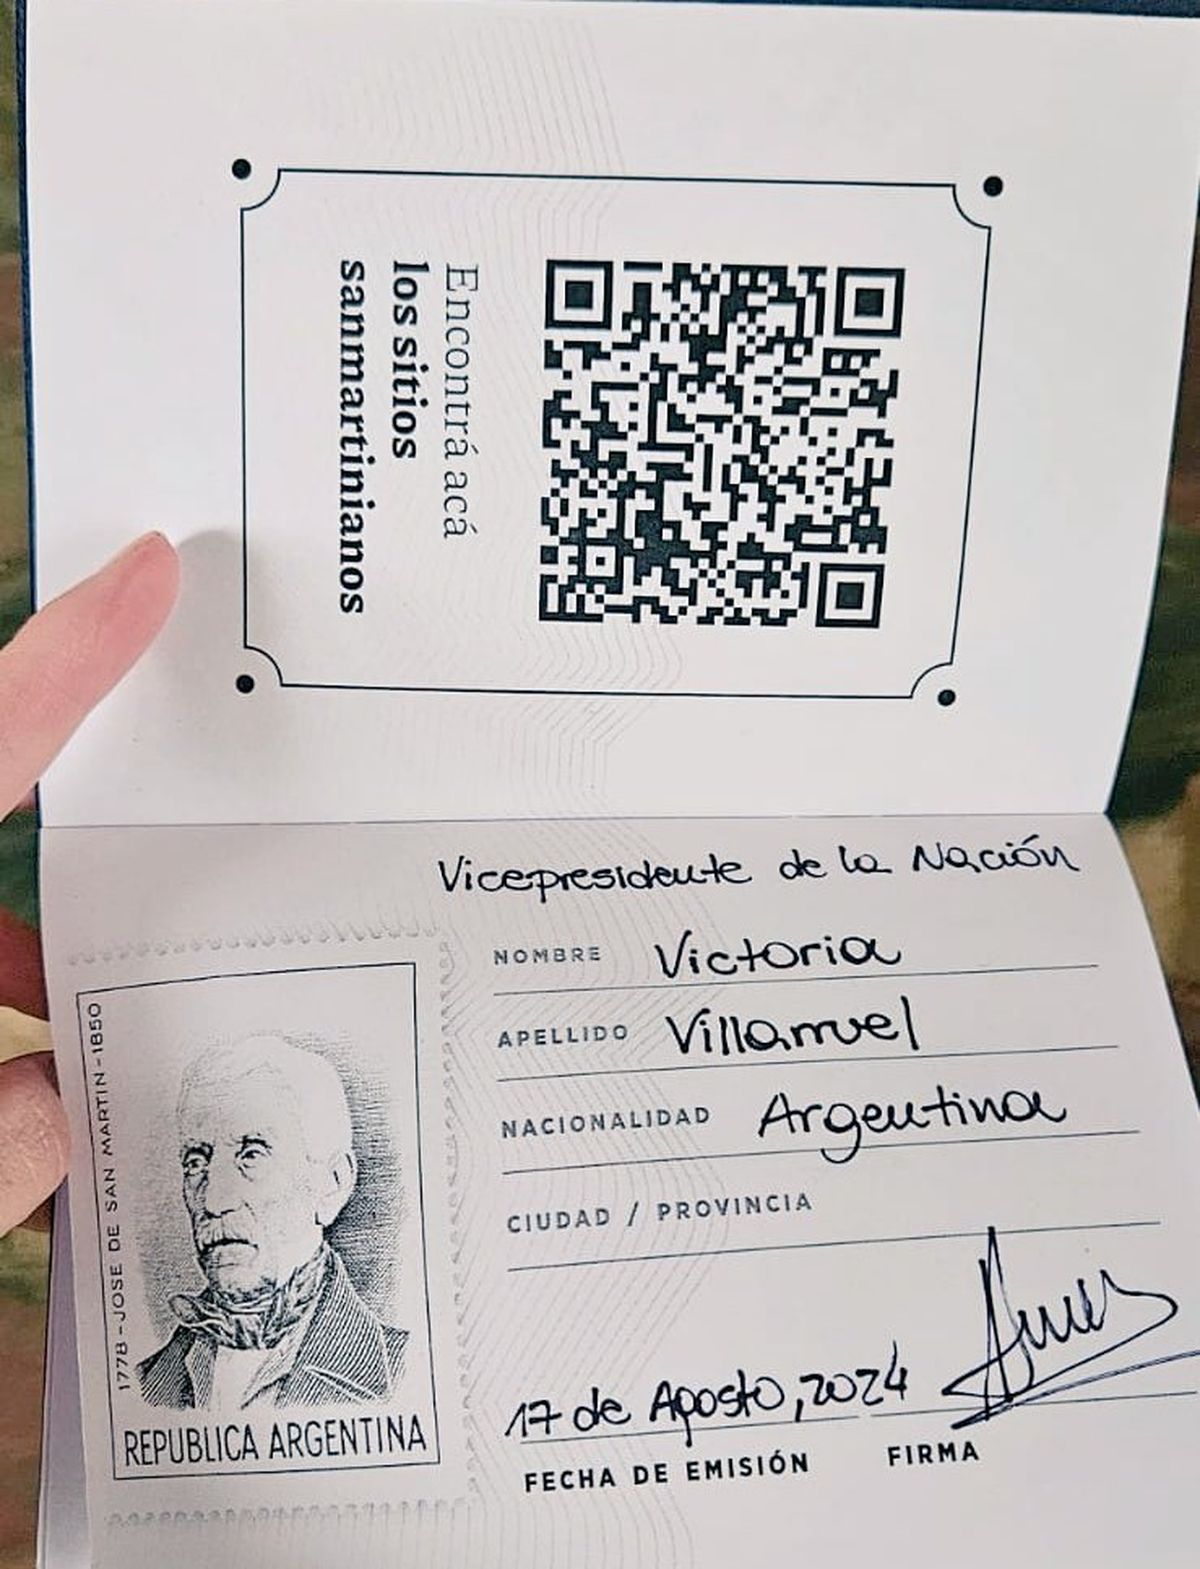 Encontrá acá
los sitios
sanmartinianos
Vicepresidente de la Nación
NOMBRE Victoria
APELLIDO Villarruel
NACIONALIDAD Argentina
CIUDAD / PROVINCIA
1778-JOSE DE SAN MARTIN-1850
REPUBLICA ARGENTINA
17 de Agosto, 2024
FECHA DE EMISIÓN FIRMA